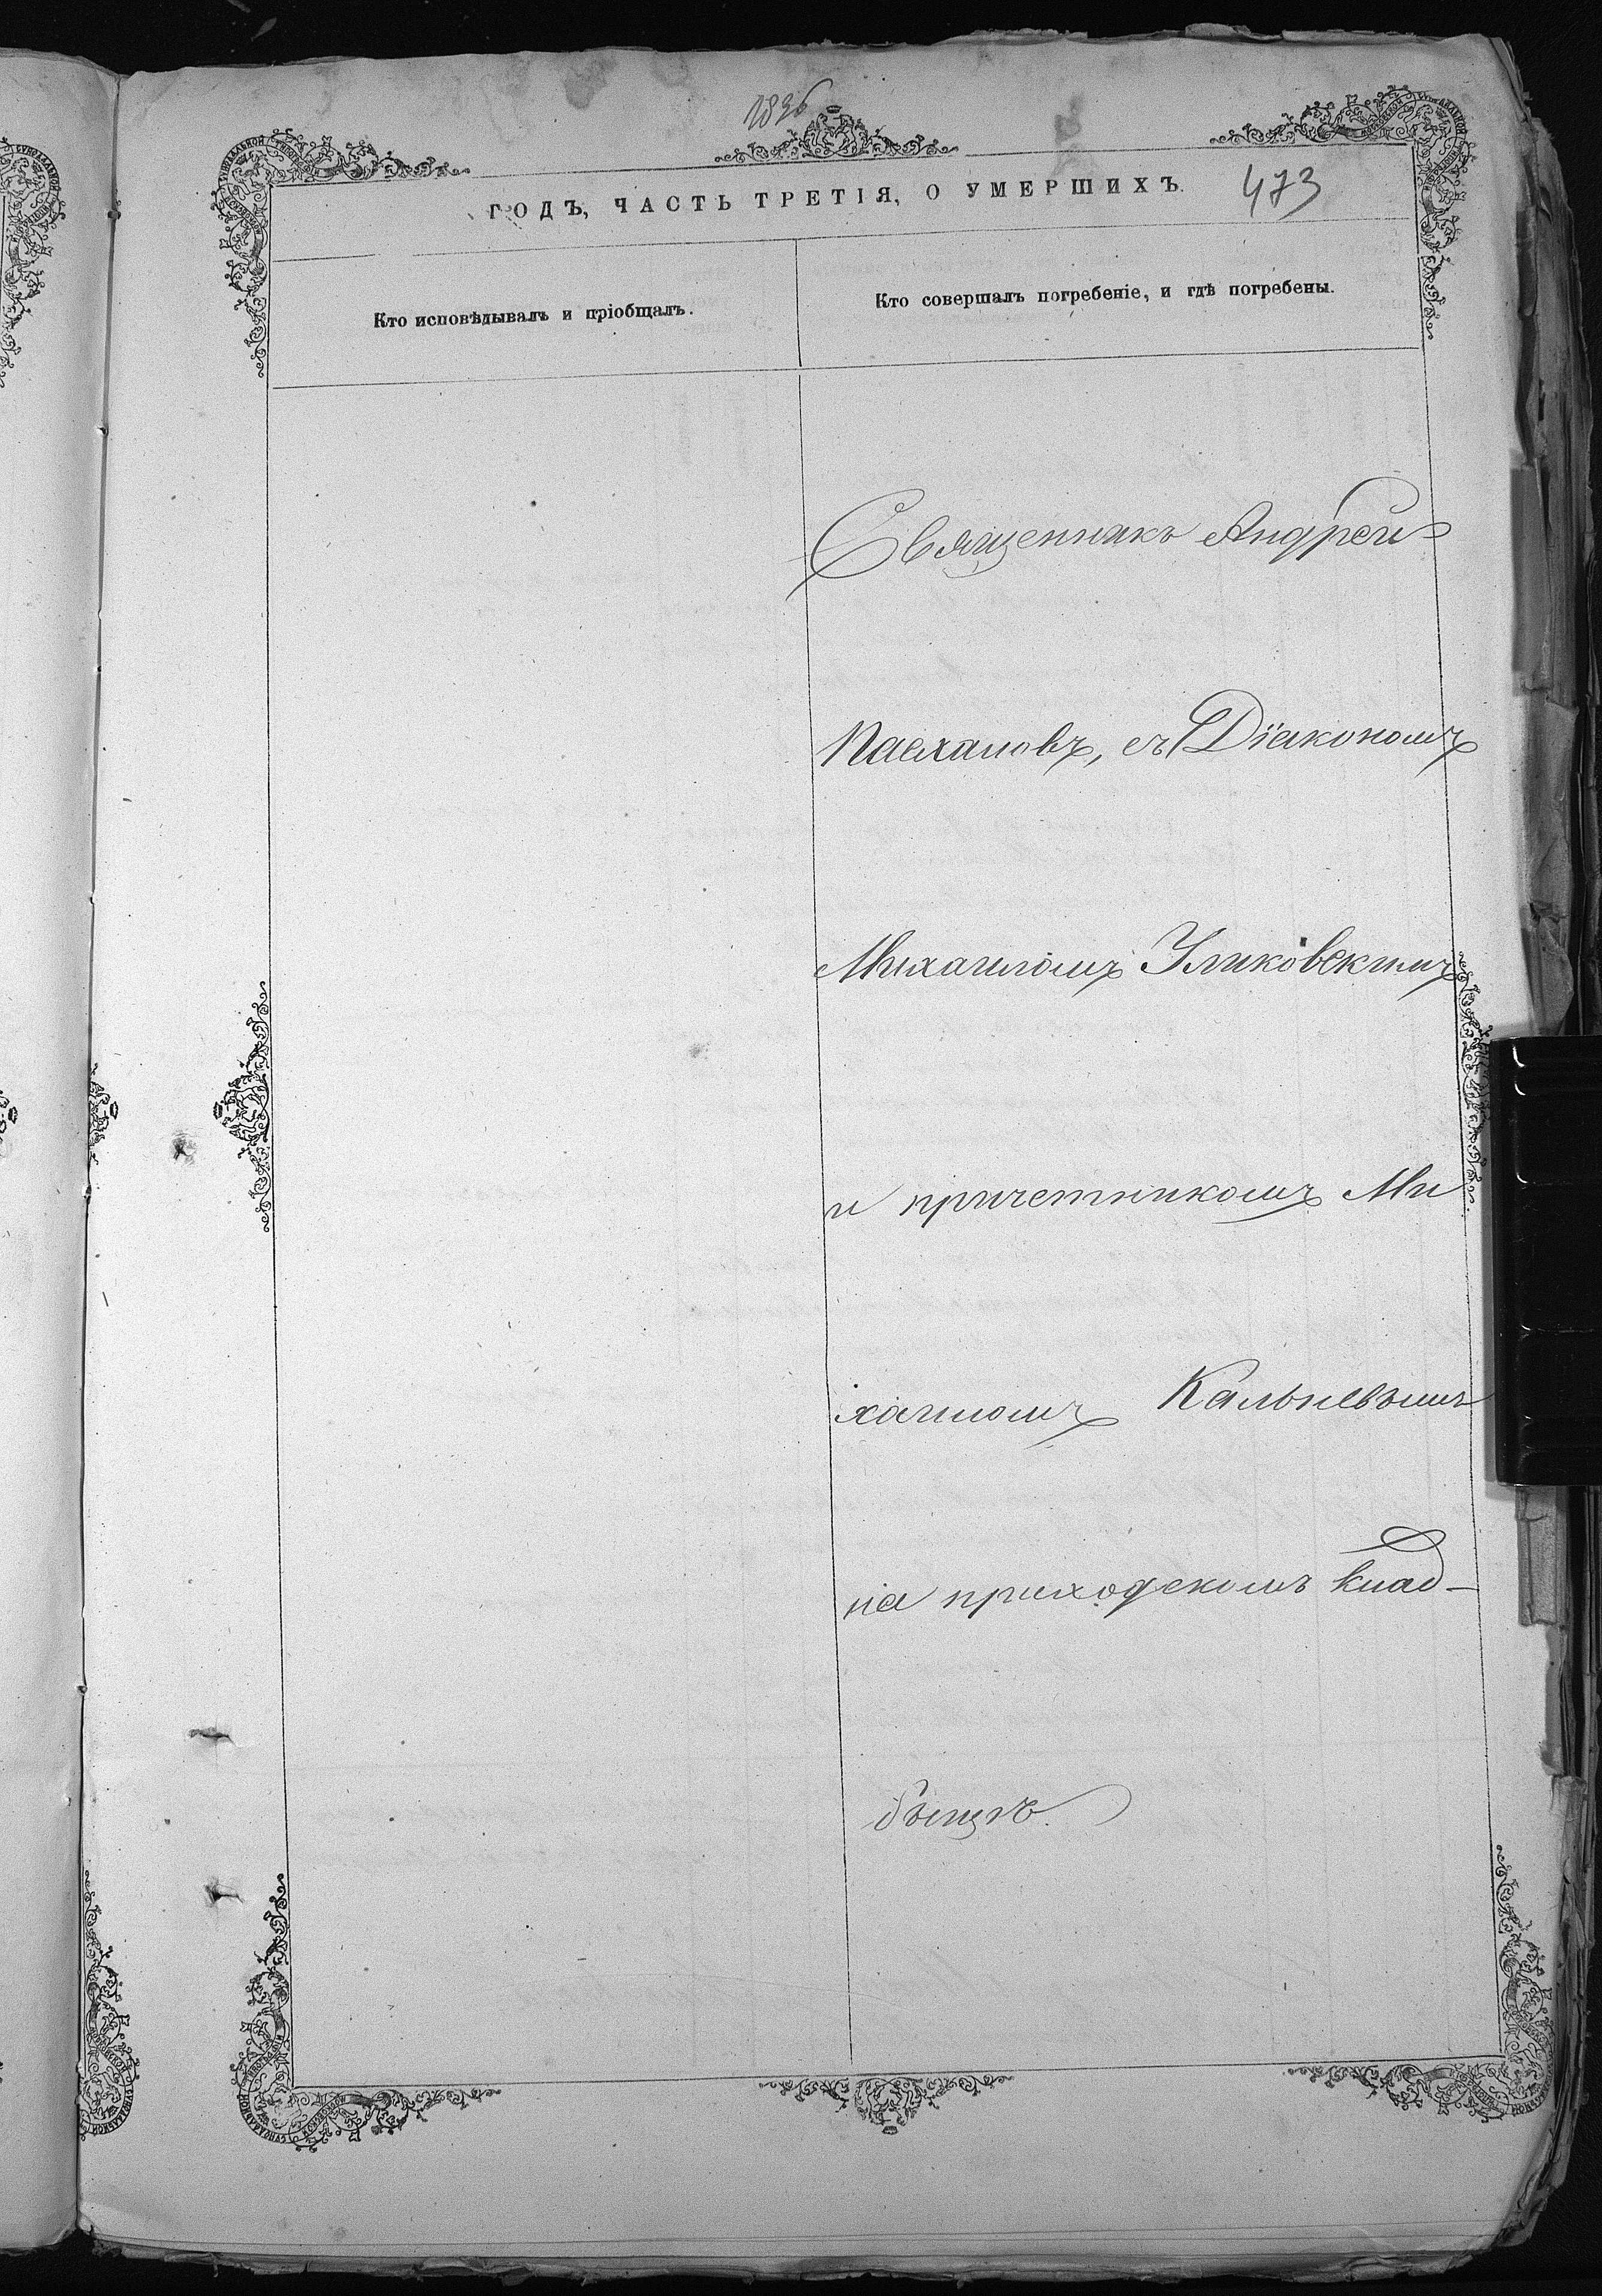 1896
ГОДЪ, ЧАСТЬ ТРЕТІЯ, О УМЕРШИХЪ.
473
Кто исповѣдывалъ и пріобщалъ.
Кто совершалъ погребеніе, и гдѣ погребены.
Священникъ Андрей
Пасхаловъ, съ Діакономъ
Михаиломъ Уликовскимъ
и причетникомъ Ми
хаиломъ Кальневымъ
на приходскомъ клад-
бищѣ.